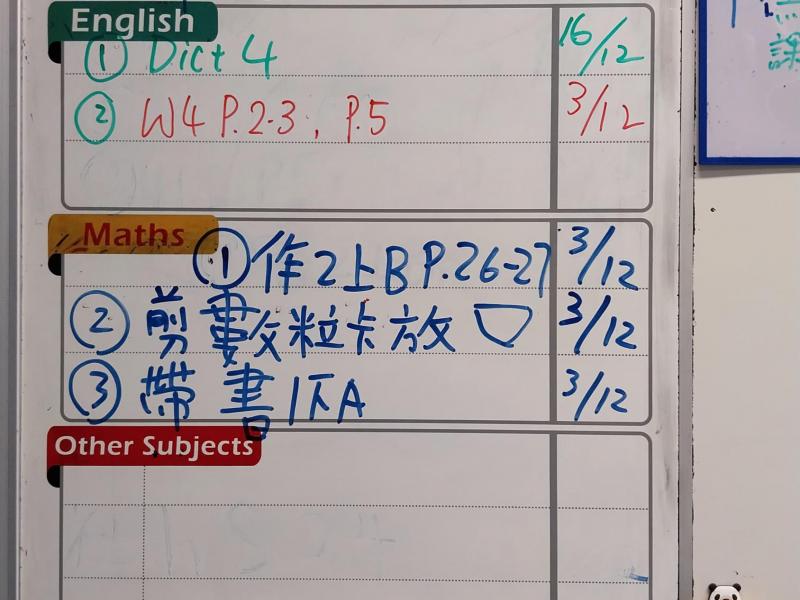 English
① Dict 4 16/12
② W4 P.2-3, P.5 3/12
Maths
① 作2上B P.26-27 3/12
② 剪數粒卡放 3/12
③ 帶書1下A 3/12
Other Subjects
課